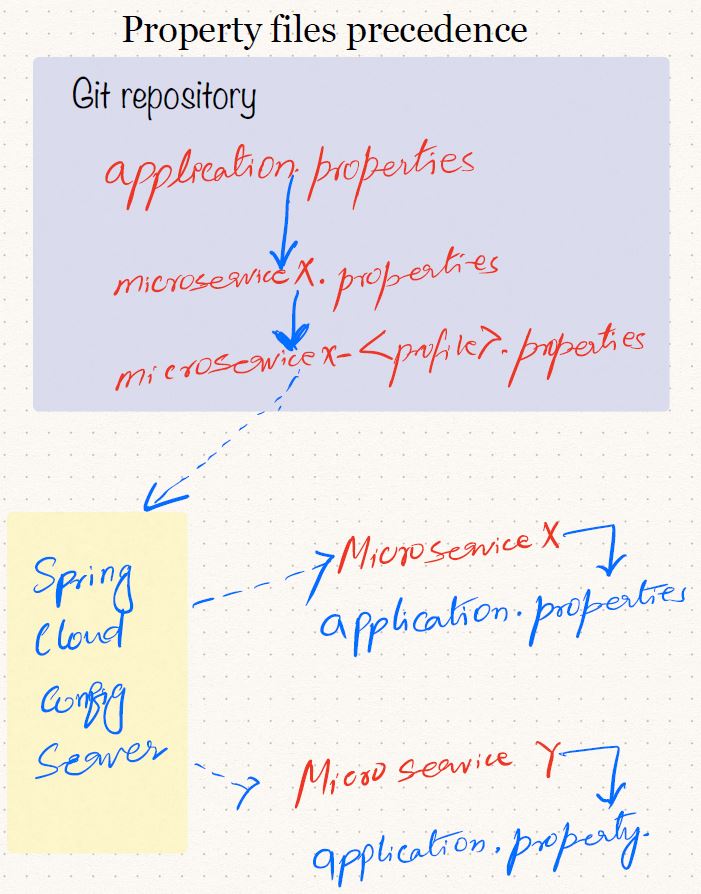 Property files precedence
Git repository
application. properties
microservice X. properties
microservice x-<profile>. properties
Spring
Cloud
Config
Server
Microservice X
application. properties
Micro service Y
application. property.